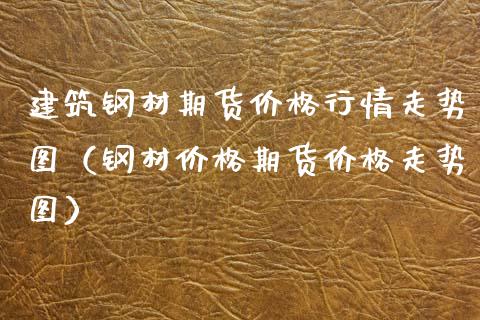 建筑钢材期货价格行情走势
图（钢材价格期货价格走势
图）